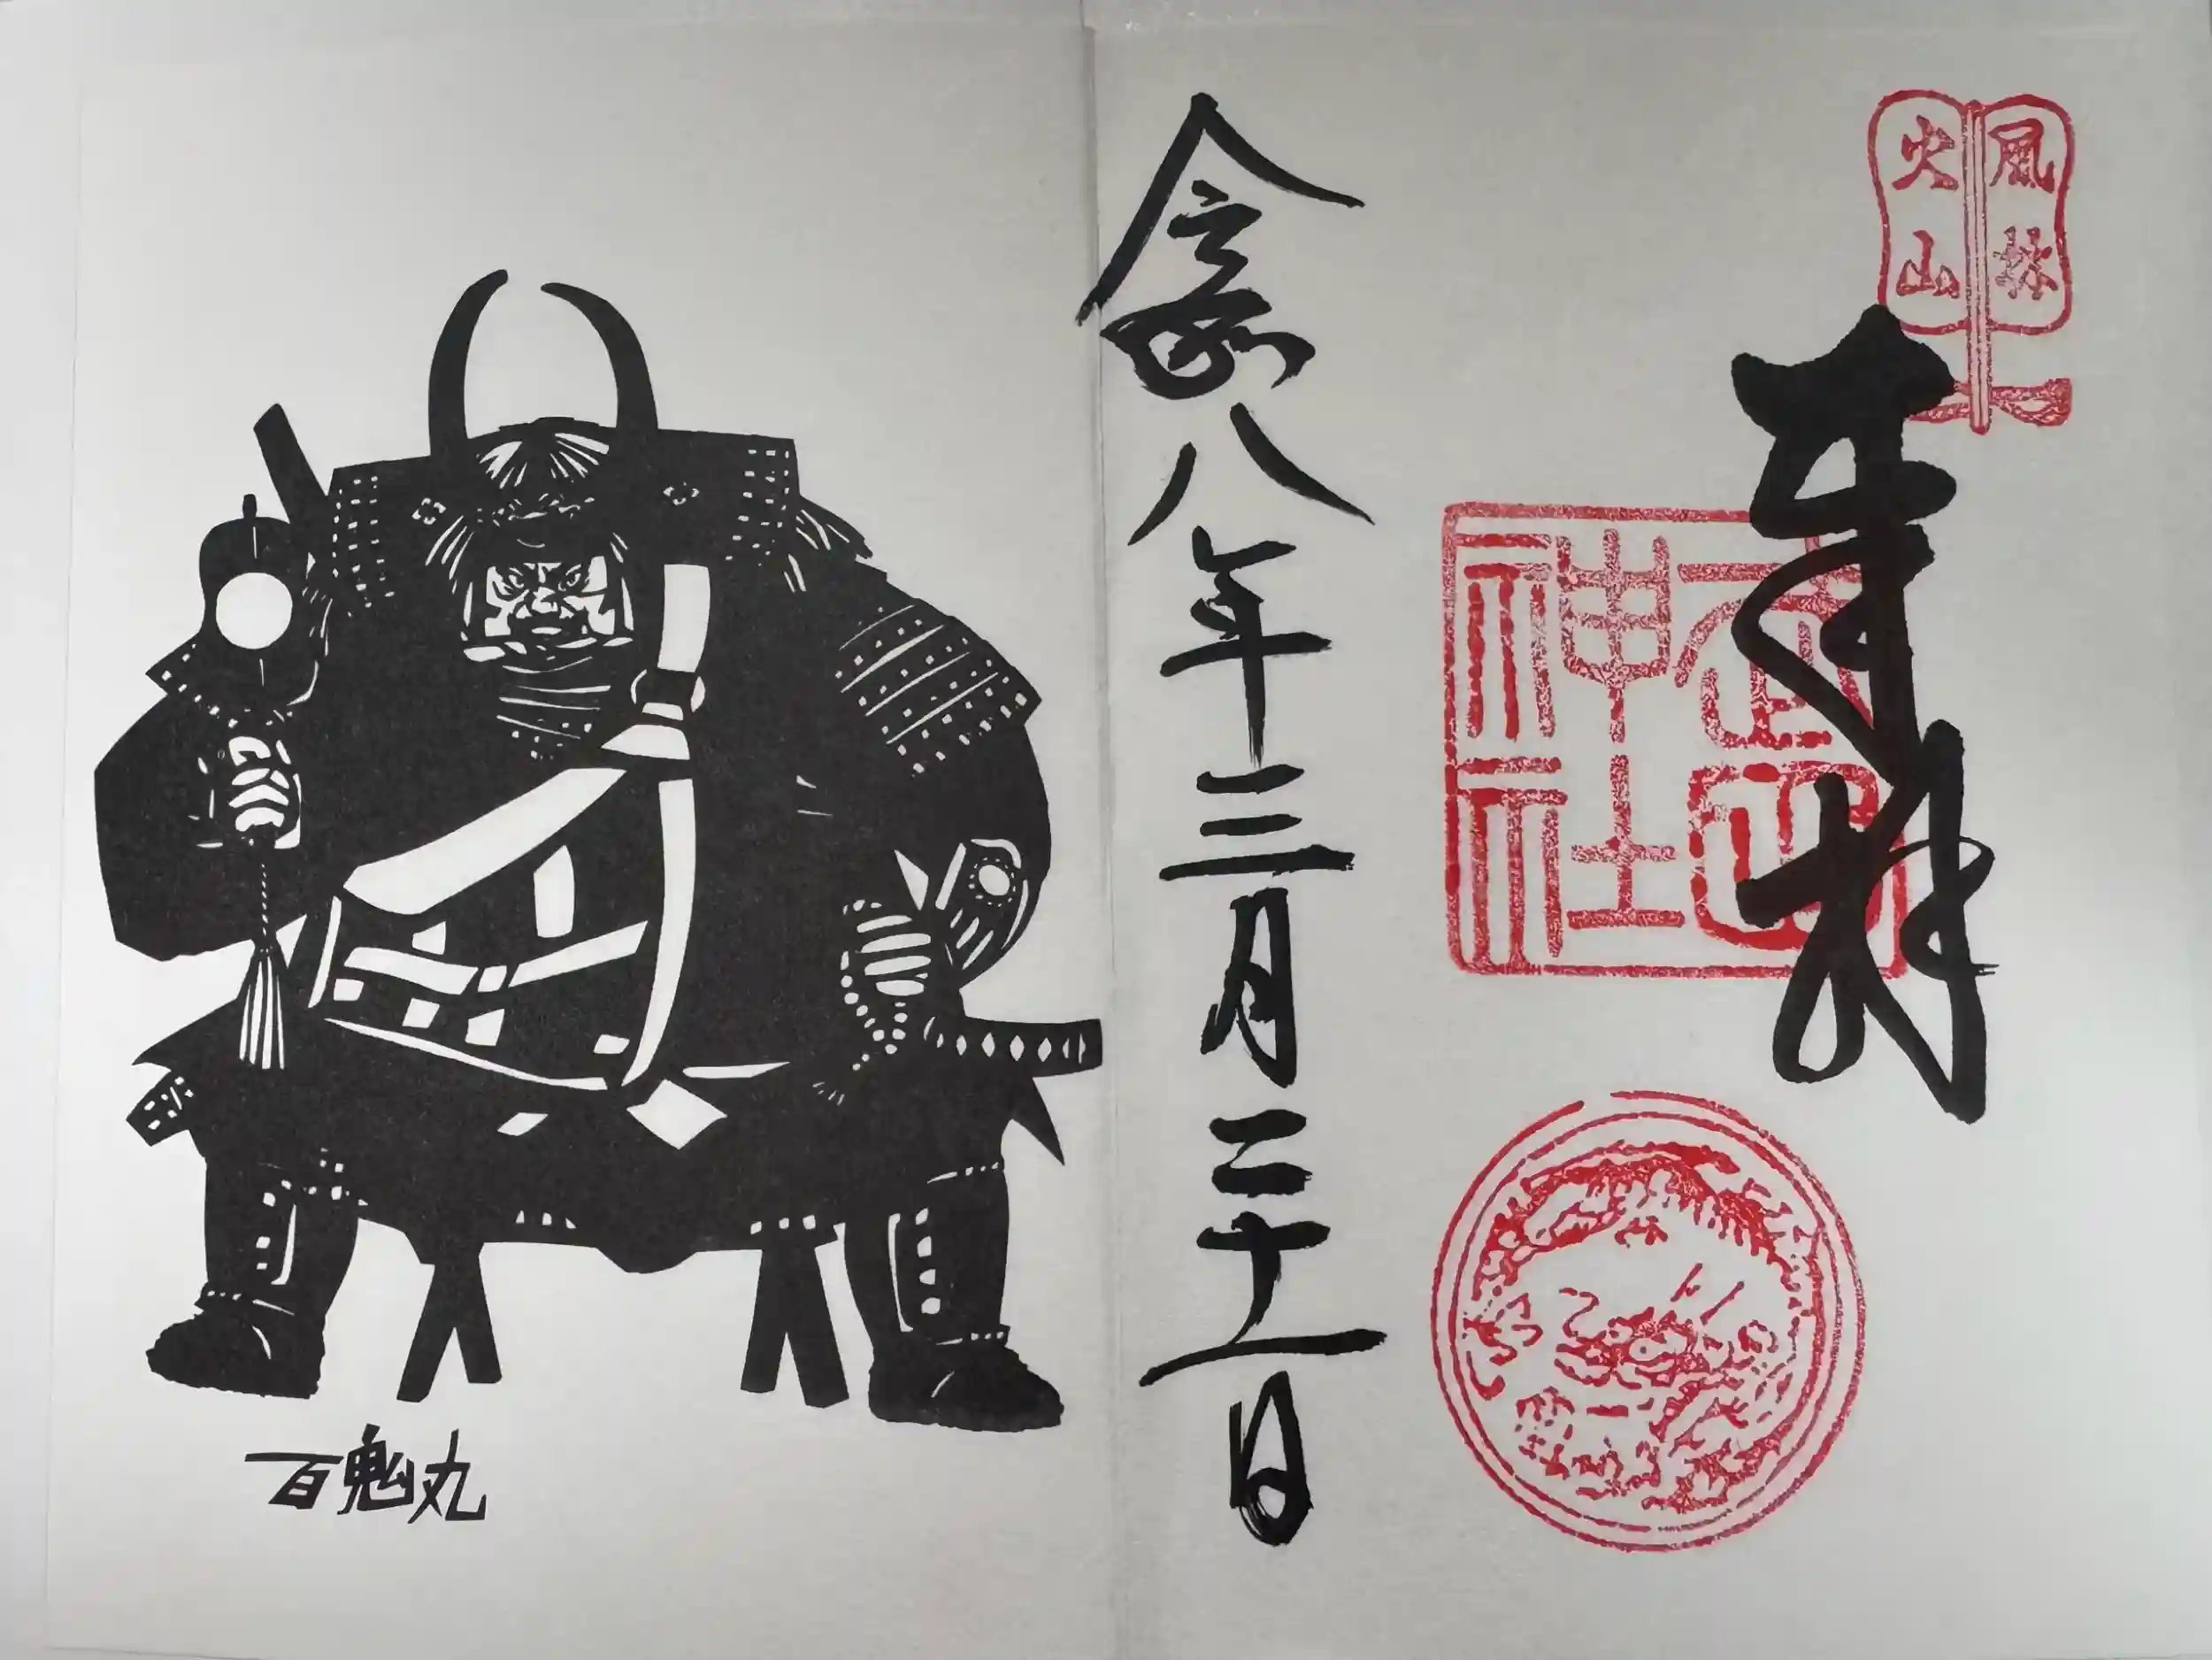 風林
火山
奉拝
武田
神社
令和八年三月二十一日
百鬼丸